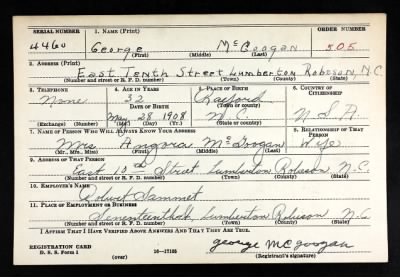 SERIAL NUMBER 1. NAME (Print) ORDER NUMBER
4460 George McGoogan 505
(First) (Middle) (Last)
2. ADDRESS (Print)
East Tenth Street Lumberton Robeson, N.C.
(Number and street or R. F. D. number) (Town) (County) (State)
3. TELEPHONE 4. AGE IN YEARS 5. PLACE OF BIRTH 6. COUNTRY OF CITIZENSHIP
None 32
DATE OF BIRTH (Town or county)
May 28 1908 N.C.
(Exchange) (Number) (Mo.) (Day) (Yr.) (State or country)
7. NAME OF PERSON WHO WILL ALWAYS KNOW YOUR ADDRESS 8. RELATIONSHIP OF THAT PERSON
Mrs Angora McGoogan Wife
(Mr., Mrs., Miss) (First) (Middle) (Last)
9. ADDRESS OF THAT PERSON
East Street, Lumberton Robeson N.C.
(Number and street or R. F. D. number) (Town) (County) (State)
10. EMPLOYER'S NAME
11. PLACE OF EMPLOYMENT OR BUSINESS
Lumberton Robeson N.C.
(Number and street or R. F. D. number) (Town) (County) (State)
I AFFIRM THAT I HAVE VERIFIED ABOVE ANSWERS AND THAT THEY ARE TRUE.
REGISTRATION CARD george McGoogan
D. S. S. Form 1 (over) (Registrant's signature)